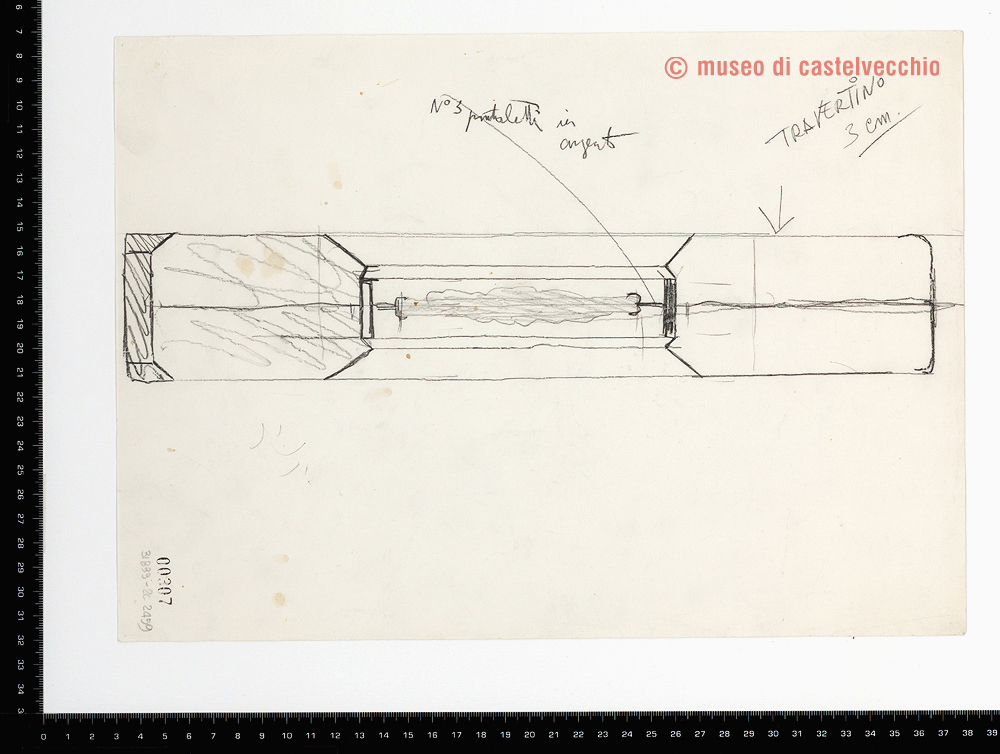 © museo di castelvecchio
N° 3 in
argent
TRAVERTINO
3 cm.
00207
31893-2C 2459
6
7
8
9
10
11
12
13
14
15
16
17
18
19
20
21
22
23
24
25
26
27
28
29
30
31
32
33
34
3
0 1 2 3 4 5 6 7 8 9 10 11 12 13 14 15 16 17 18 19 20 21 22 23 24 25 26 27 28 29 30 31 32 33 34 35 36 37 38 39